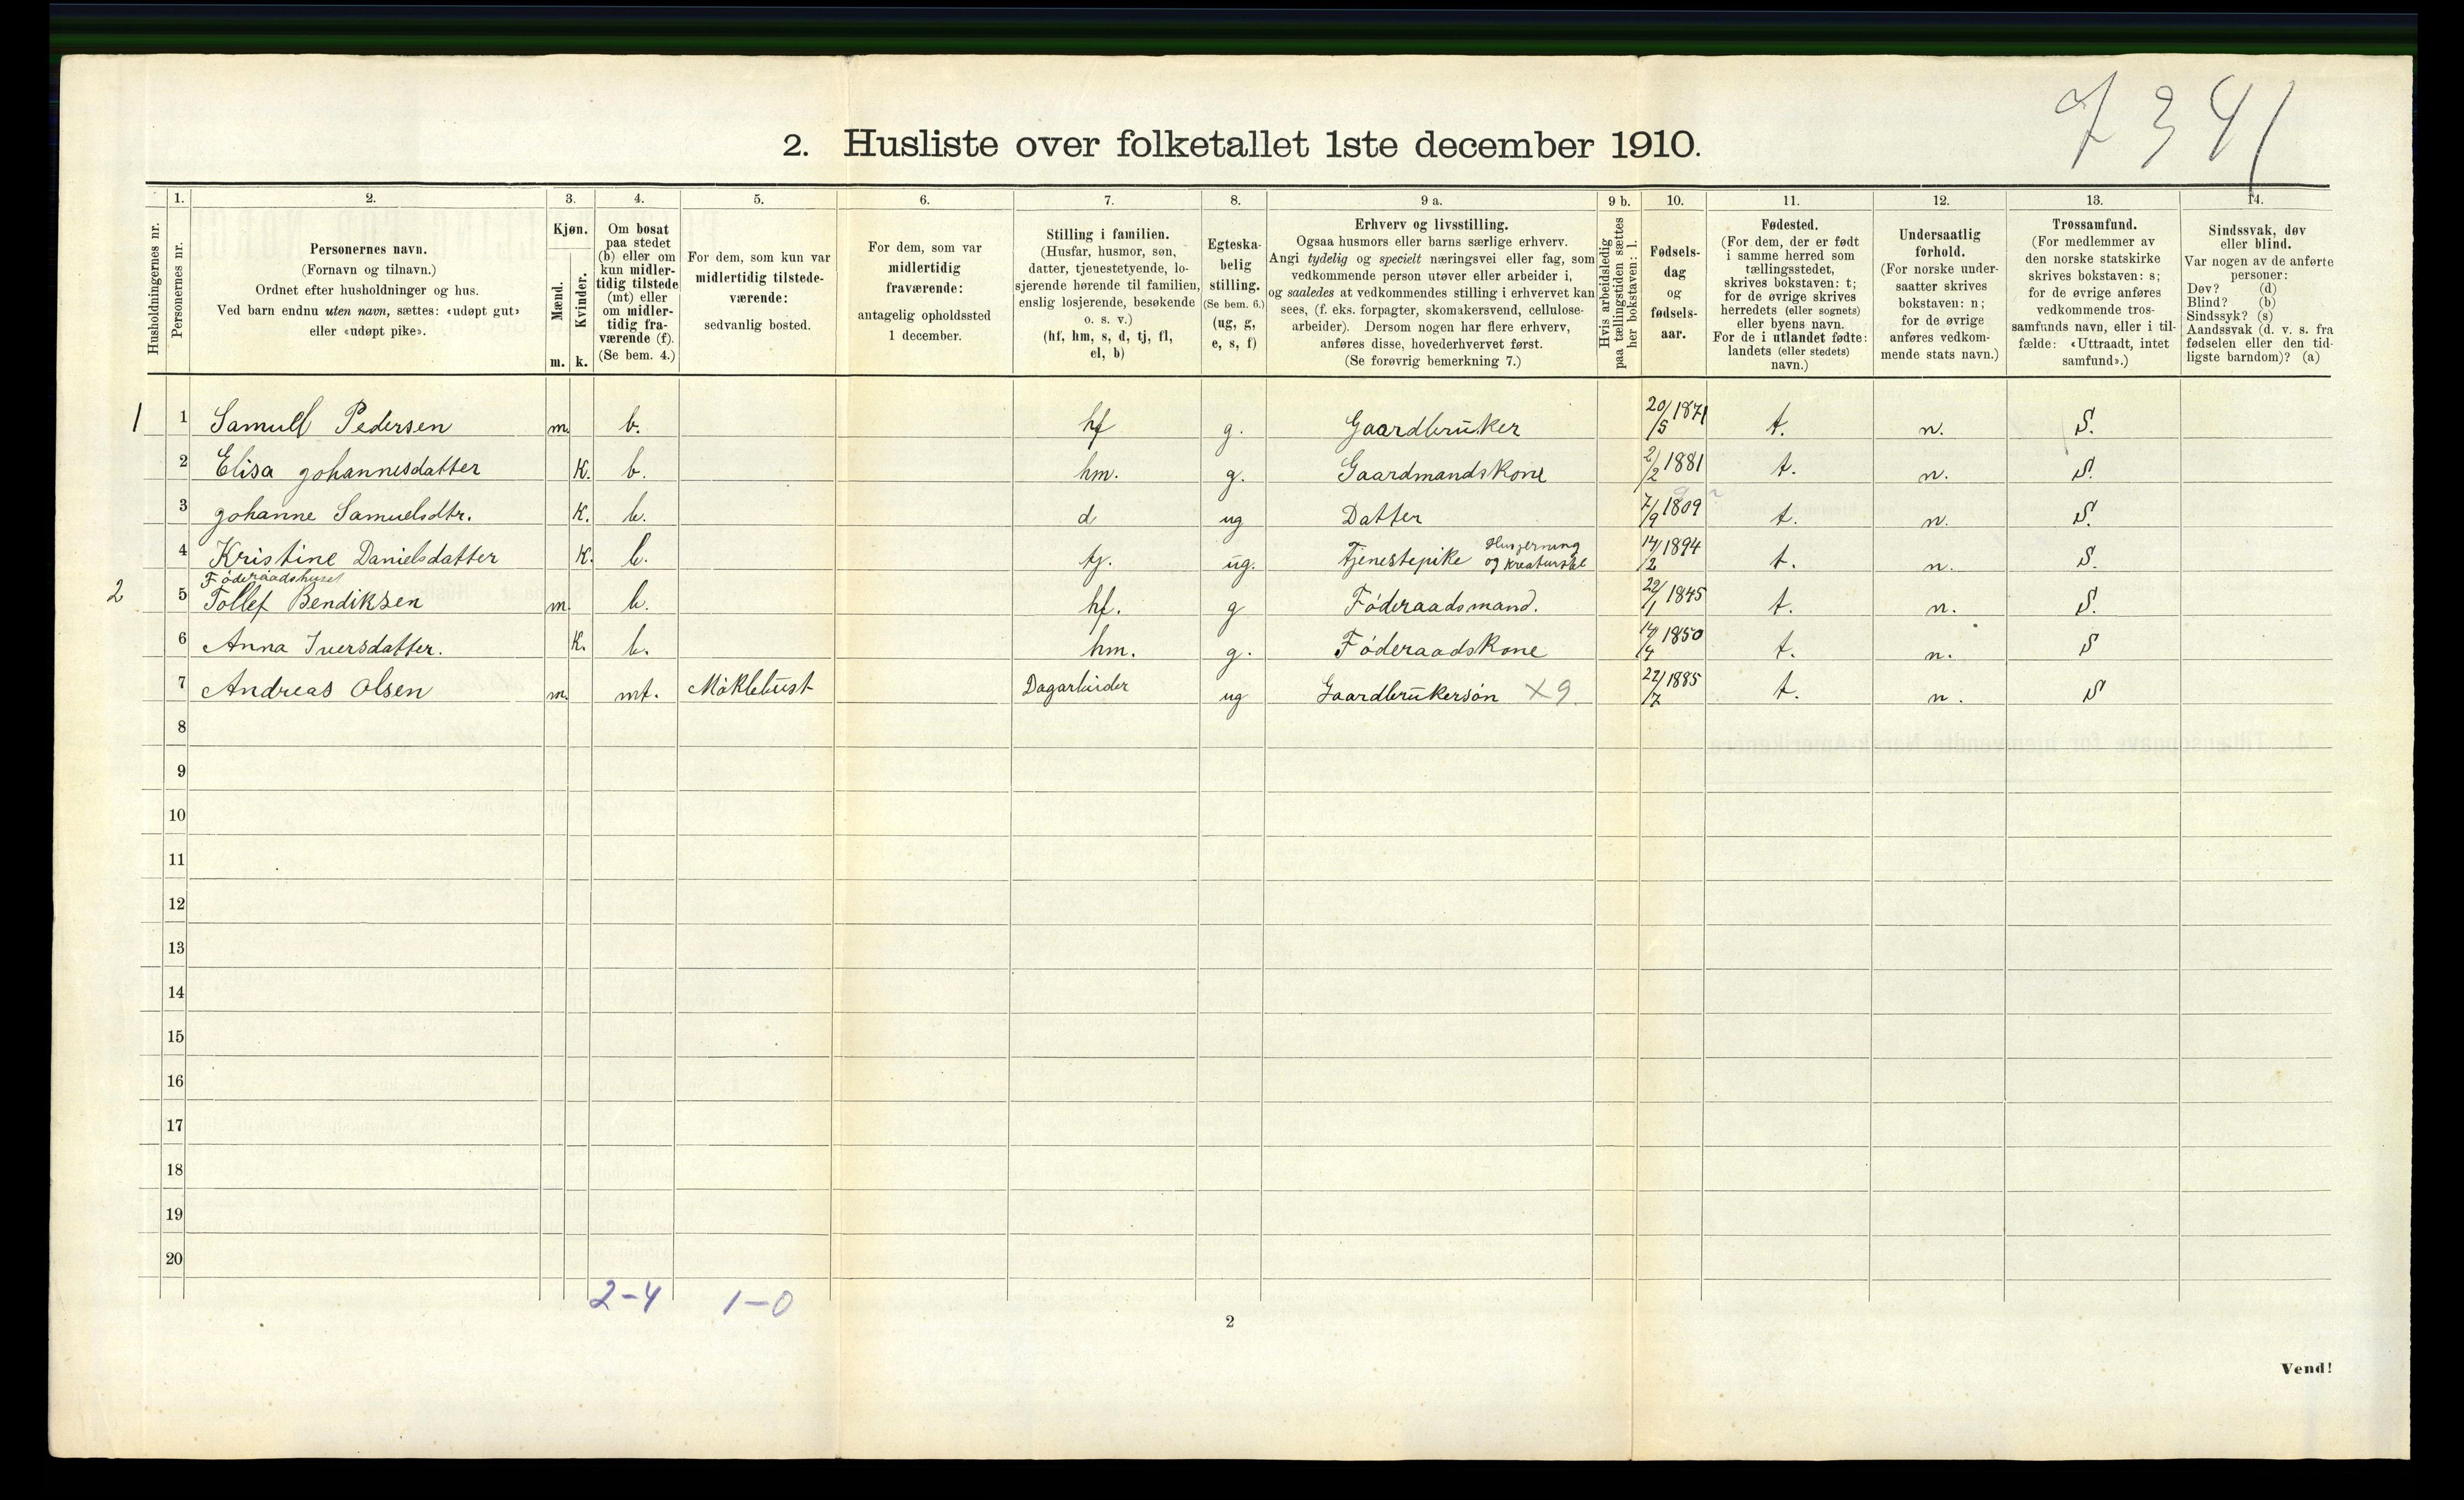 7341
2. Husliste over folketallet 1ste december 1910.
Husholdningernes nr.
1. Personernes nr.
2. Personernes navn.
(Fornavn og tilnavn.)
Ordnet efter husholdninger og hus.
Ved barn endnu uten navn, sættes: «udøpt gut»
eller «udøpt pike».
3. Kjøn.
Mænd. m.
Kvinder. k.
4. Om bosat
paa stedet
(b) eller om
kun midler-
tidig tilstede
(mt) eller
om midler-
tidig fra-
værende (f).
(Se bem. 4.)
5. For dem, som kun var
midlertidig tilstede-
værende:
sedvanlig bosted.
6. For dem, som var
midlertidig
fraværende:
antagelig opholdssted
1 december.
7. Stilling i familien.
(Husfar, husmor, søn,
datter, tjenestetyende, lo-
sjerende hørende til familien,
enslig losjerende, besøkende
o. s. v.)
(hf, hm, s, d, tj, fl,
el, b)
8. Egteska-
belig
stilling.
(Se bem. 6.)
(ug, g,
e, s, f)
9 a. Erhverv og livsstilling.
Ogsaa husmors eller barns særlige erhverv.
Angi tydelig og specielt næringsvei eller fag, som
vedkommende person utøver eller arbeider i,
og saaledes at vedkommendes stilling i erhvervet kan
sees, (f. eks. forpagter, skomakersvend, cellulose-
arbeider). Dersom nogen har flere erhverv,
anføres disse, hovederhvervet først.
(Se forøvrig bemerkning 7.)
9 b. Hvis arbeidsledig
paa tællingstiden sættes
her bokstaven: l.
10. Fødsels-
dag
og
fødsels-
aar.
11. Fødested.
(For dem, der er født
i samme herred som
tællingsstedet,
skrives bokstaven: t;
for de øvrige skrives
herredets (eller sognets)
eller byens navn.
For de i utlandet fødte:
landets (eller stedets)
navn.)
12. Undersaatlig
forhold.
(For norske under-
saatter skrives
bokstaven: n;
for de øvrige
anføres vedkom-
mende stats navn.)
13. Trossamfund.
(For medlemmer av
den norske statskirke
skrives bokstaven: s;
for de øvrige anføres
vedkommende tros-
samfunds navn, eller i til-
fælde: «Uttraadt, intet
samfund».)
14. Sindssvak, døv
eller blind.
Var nogen av de anførte
personer:
Døv? (d)
Blind? (b)
Sindssyk? (s)
Aandssvak (d. v. s. fra
fødselen eller den tid-
ligste barndom)? (a)
1 1 Samuel Pedersen m. b. hf g. Gaardbruker 20/5 1871 t. n. S.
2 Elisa Johannesdatter K. b. hm. g. Gaardmandskone 2/2 1881 t. n. S.
3 Johanne Samuelsdtr. K. b. d ug Datter 7/9 1809 t. n. S.
4 Kristine Danielsdatter K. b. tj. ug. Tjenestepike Husgerning og kreaturstel 14/2 1894 t. n. S.
Föderaadshuset
2 5 Tollef Bendiksen m b. hf. g Föderaadsmand. 22/1 1845 t. n. S.
6 Anna Iversdatter. K. b. hm. g. Föderaadskone 14/4 1850 t. n. S
7 Andreas Olsen m. mt. Möklebust Dagarbeider ug Gaardbrukersön X9. 22/7 1885 t. n. S
8
9
10
11
12
13
14
15
16
17
18
19
20
2-4 1-0
2
Vend!